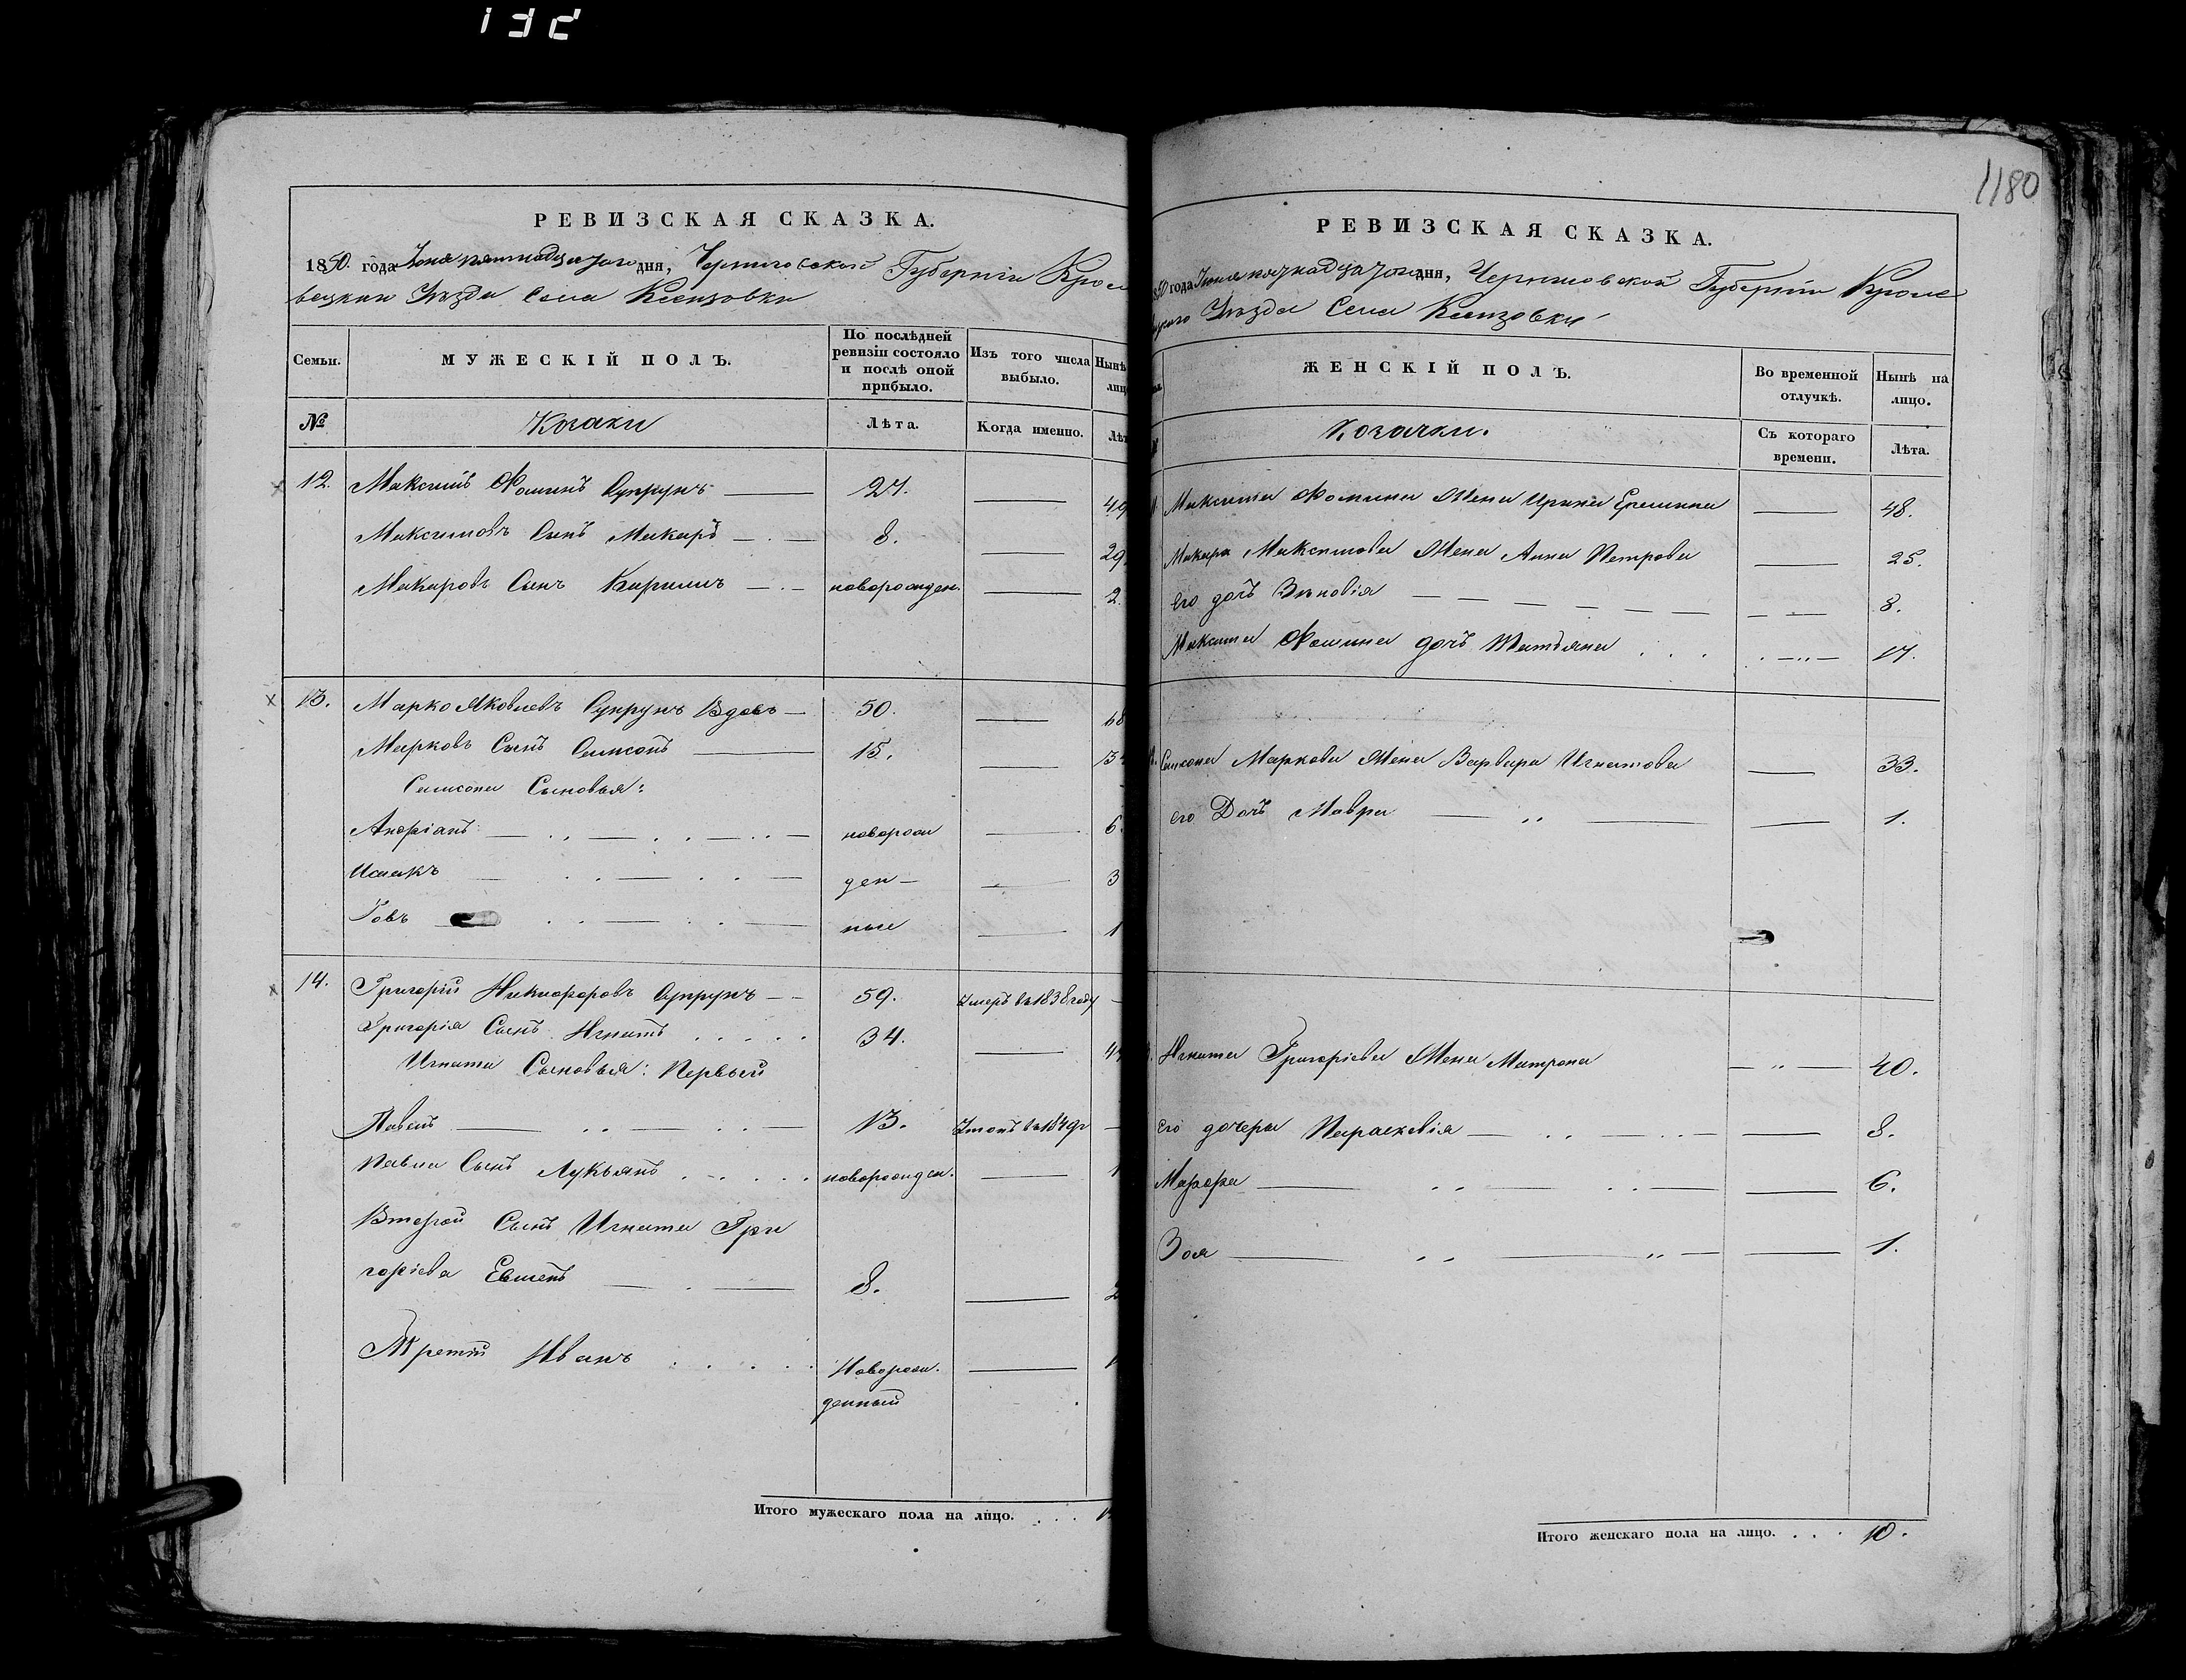 132
РЕВИЗСКАЯ СКАЗКА.
1850. года Іюня пятнадцатого дня, Черниговской Губерніи Кроле
вецкии Уѣзда Села
Семьи.
МУЖЕСКІЙ ПОЛЪ.
По послѣдней ревизіи состояло и послѣ оной прибыло.
Изъ того числа выбыло.
Нынѣ
лиц
№
Козаки
Лѣта.
Когда именно.
Лѣт
12. Максимъ Фоминъ Супрунъ 27. 49
Максимовъ Сынъ Макаръ 8. 29
Макаровъ Сынъ Кирилъ новорожден. 2.
13. Марко Яковлевъ Супрунъ Вдовъ 50. 68
Марковъ Сынъ Самсонъ 15.
Самсона Сыновья:
Андріанъ новорож 6.
Исаакъ ден 3
Іовъ ные 1
14. Григорій Никифоровъ Супрунъ 59. Умеръ въ 1838 году
Григорія Сынъ Игнатъ 34.
Игната Сыновья: Первый
Павелъ 13. въ 1849г
Павла Сынъ Лукьянъ новорожден.
Второй Сынъ Игната Гри
горіева Евменъ 8.
Третій Иванъ Новорож.
денный
Итого мужескаго пола на лицо.
1180
РЕВИЗСКАЯ СКАЗКА.
50 года Іюня пятнадцатого дня, Черниговской Губерніи Кроле
Уѣзда Села
ЖЕНСКІЙ ПОЛЪ.
Во временной отлучкѣ.
Нынѣ на лицо.
Козачки.
Съ котораго времени.
Лѣта.
Максима Фомина Жена Ирина 48.
Макара Максимова Жена Анна Петрова 25.
Его дочь Зиновія 8.
Максима Фомина дочь Татьяна 17.
Самсона Маркова Жена Варвара Игнатова 33.
его Дочь Мавра 1.
Игната Григоріева Жена Матрона 40.
его дочери Параскевія 8.
Марфа 6.
Зоя 1.
Итого женскаго пола на лицо. 10.